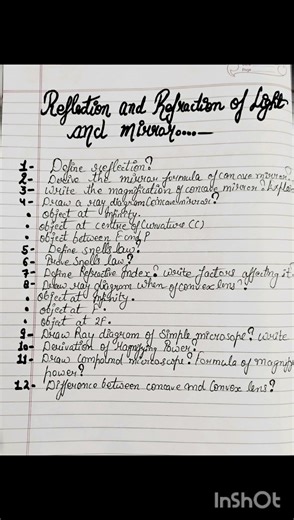 Reflection and Refraction of Light
and mirror....
1- Define reflection?
2- Derive the mirror formula of concave mirror?
3- Write the magnification of concave mirror? Explai
4- Draw a ray diagram (concave mirror?
• object at infinity.
• object at centre of curvature (C)
• object between F and P
5- Define snells law?
6- Prove Snells law?
7- Define Refractive Index? write factors affecting it
8- Draw ray diagram when of convex lens?
• object at Infinity.
• object at F.
• object at 2F.
9- Draw Ray diagram of Simple microsope? write
10- Derivation of Magnifying Power.
11- Draw compound microscope? Formula of magnif
power?
12- Difference between concave and Convex lens?
InShOt